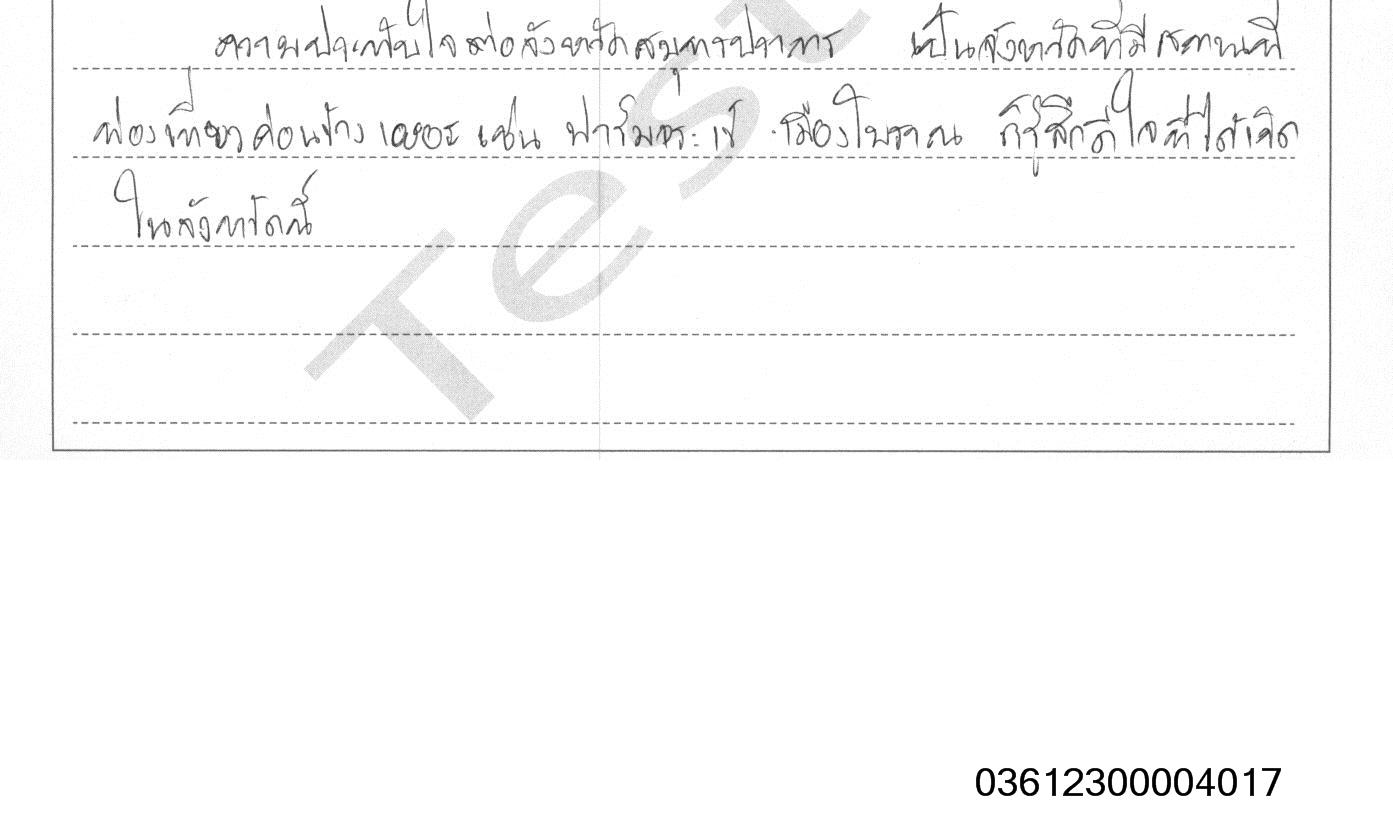 ความประทับใจต่อจังหวัดสมุทรปราการ เป็นจังหวัดที่มีสถานที่
ท่องเที่ยวค่อนข้างเยอะ เช่น ฟาร์มจระเข้ เมืองโบราณ ก็รู้สึกดีใจที่ได้เกิด
ในจังหวัดนี้
Test
03612300004017